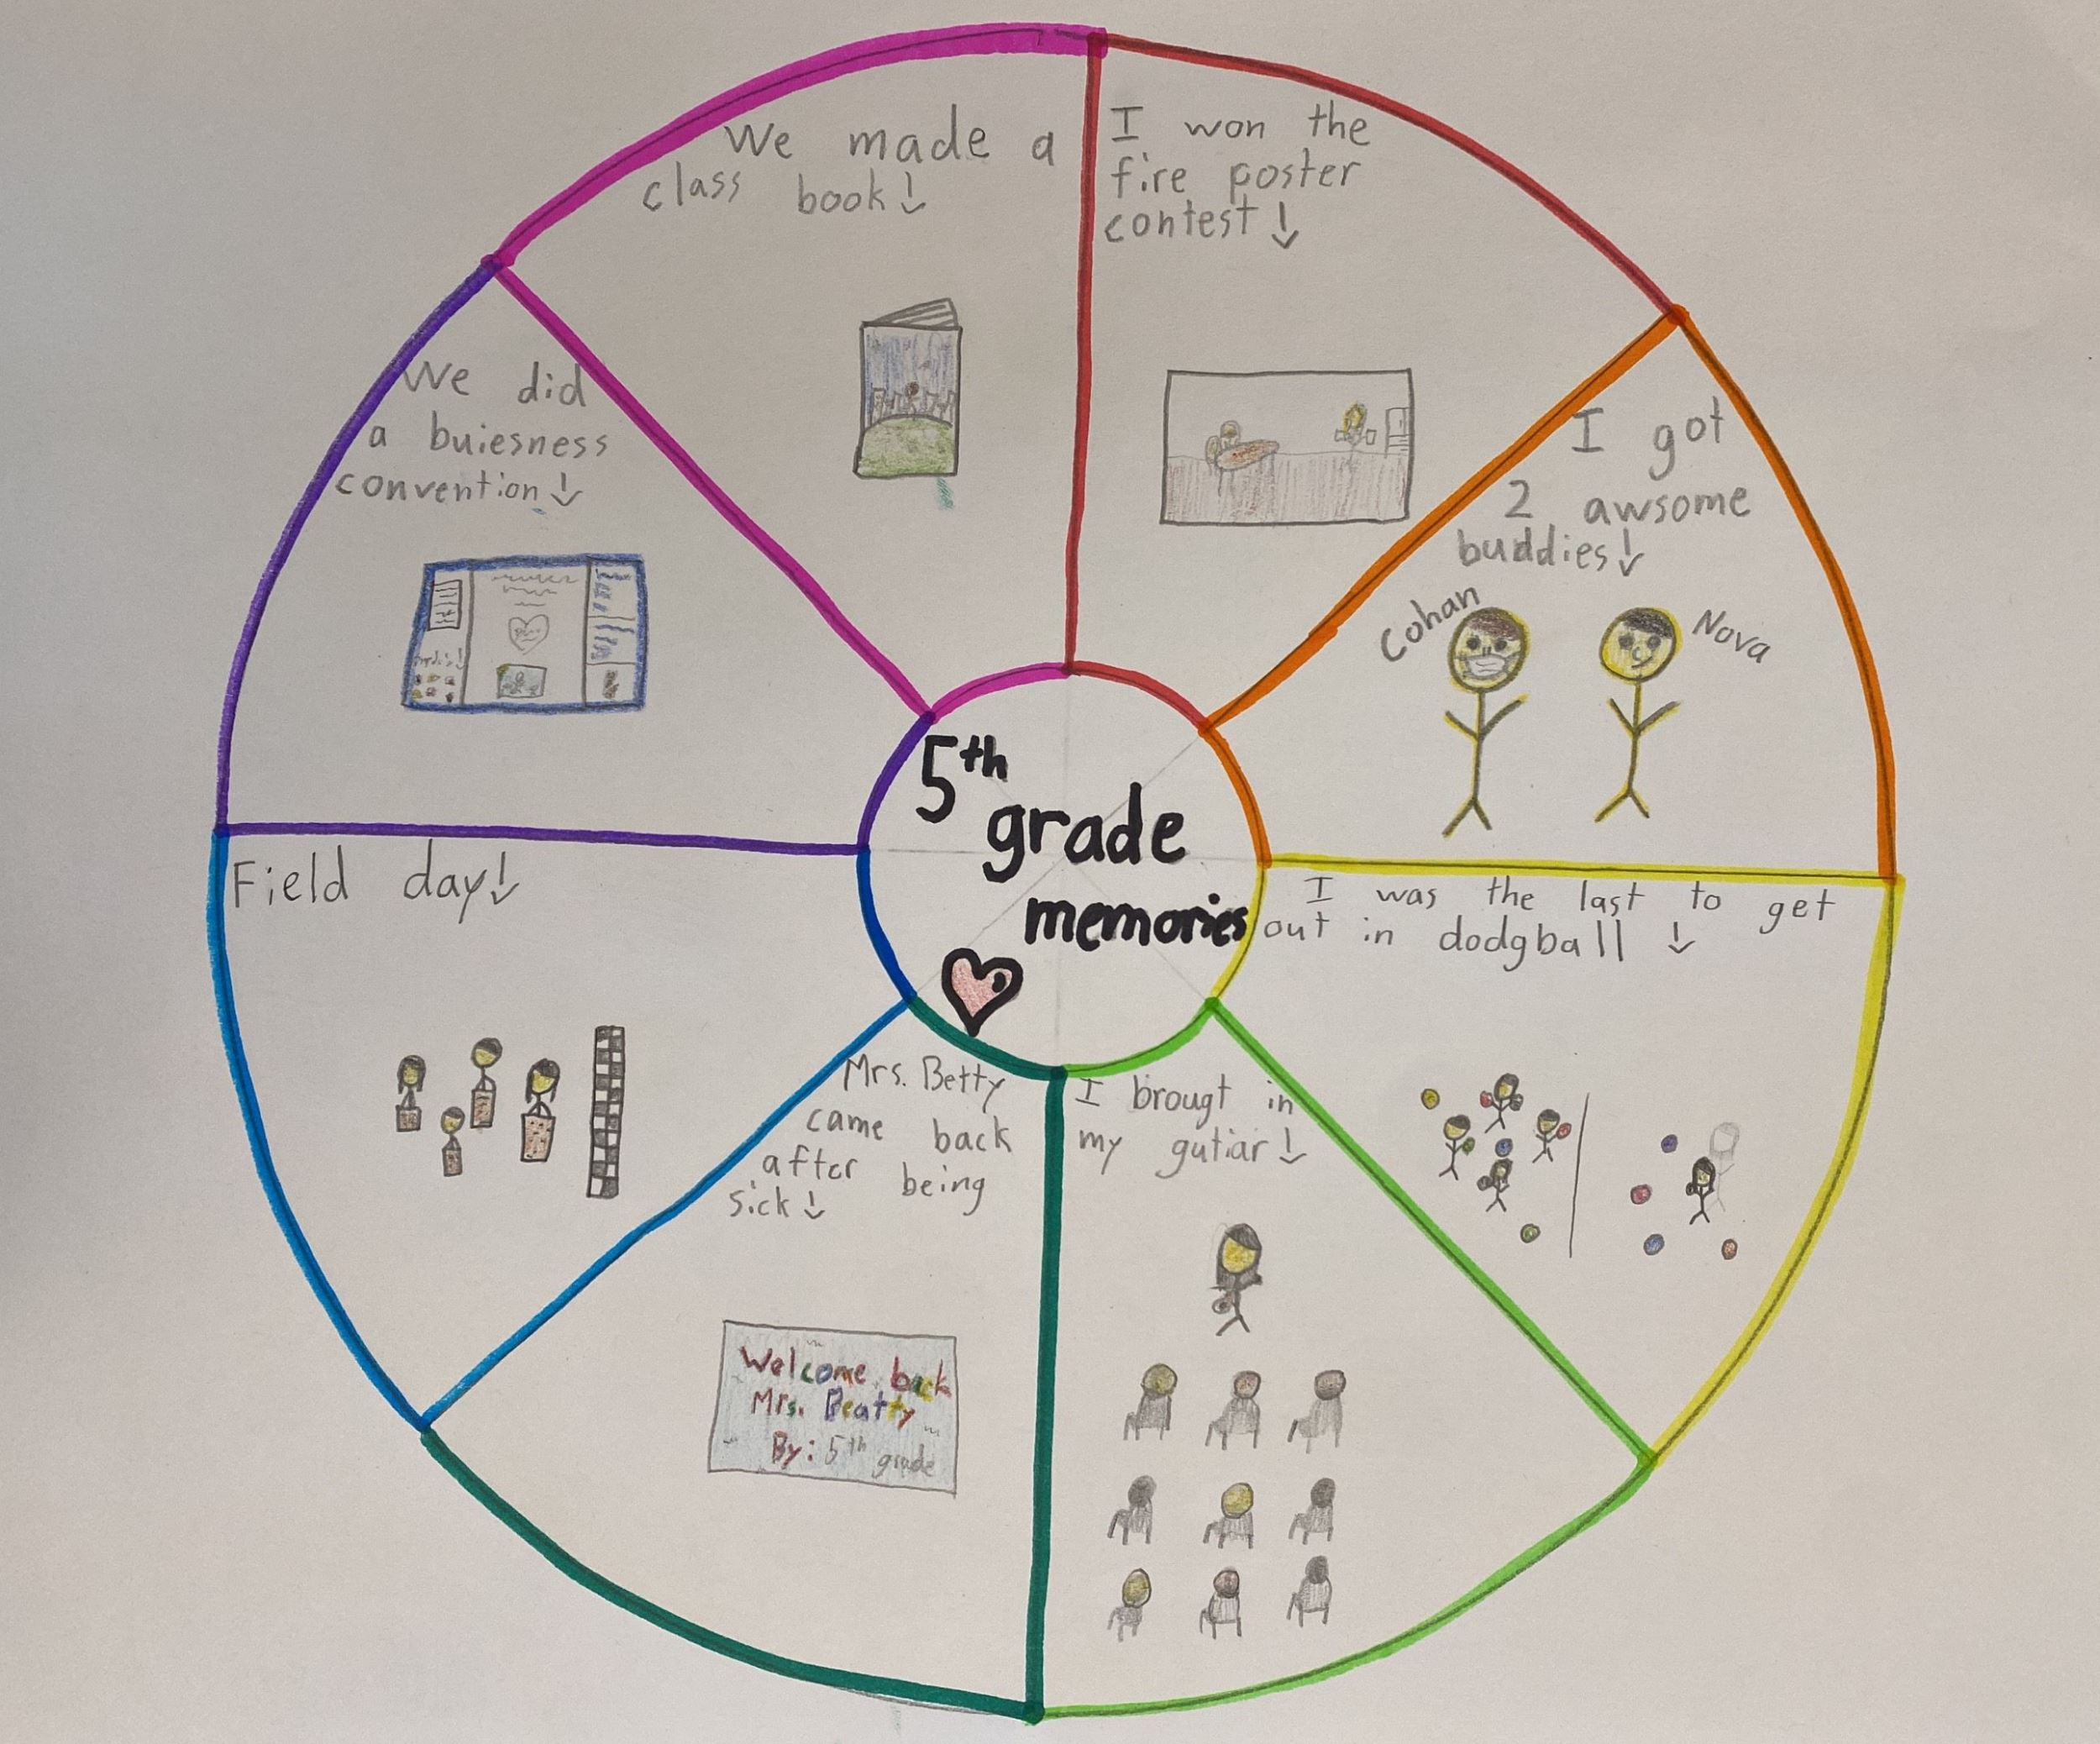 We made a
class book!
I won the
fire poster
contest!
I got
2 awsome
buddies!
Cohan
Nova
I was the last to get
out in dodgball
I brougt in
my gutiar!
Mrs. Betty
came back
after being
sick!
Welcome back
Mrs. Beatty
By: 5th grade
Field day!
We did
a buiesness
convention!
5th
grade
memories